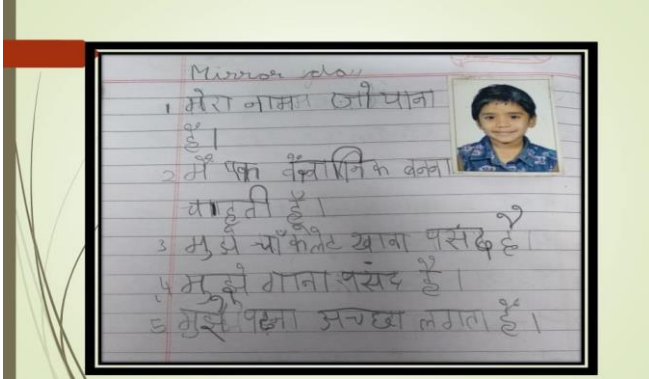 Mirror
1 मेरा नाम जोयाना
है।
2 मैं एक वैज्ञानिक बनना
चाहती हूँ।
3 मुझे चॉकलेट खाना पसंद है।
4 मुझे गाना पसंद है।
5 मुझे पढ़ना अच्छा लगता है।